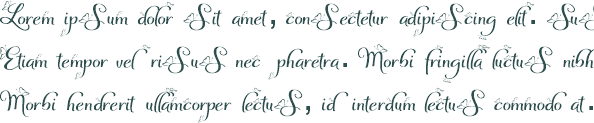 Lorem ipSum dolor Sit amet, conSectetur adipiScing elit. SuS
Etiam tempor vel riSuS nec pharetra. Morbi fringilla luctuS nibh
Morbi hendrerit ullamcorper lectuS, id interdum lectuS commodo at.